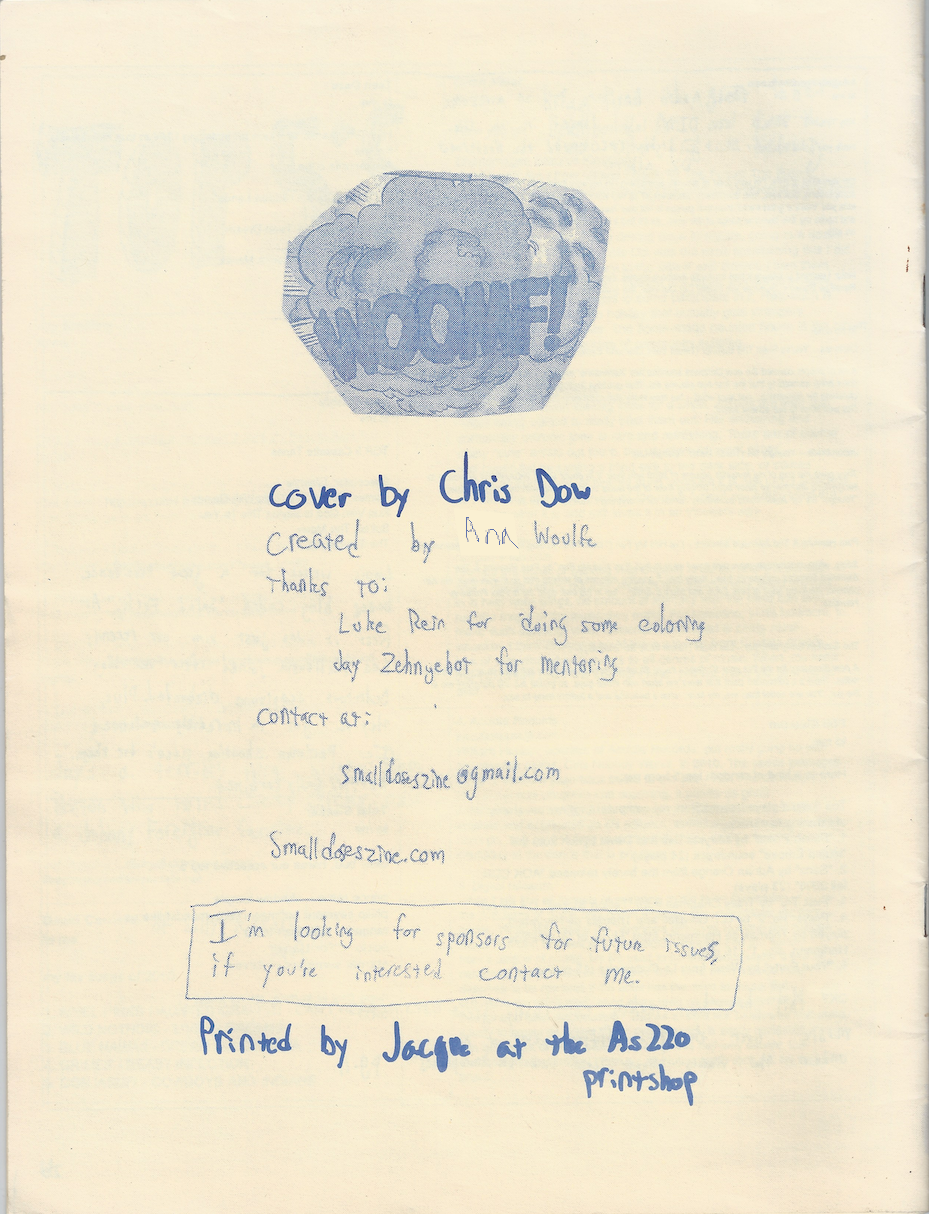 WOOMF!
cover by Chris Dow
Created by Ann Woulfe
Thanks to:
Luke Rein for doing some coloring
Jay Zehnyebot for mentoring
contact at:
smalldoseszine@gmail.com
Smalldoseszine.com
I'm looking for sponsors for future issues,
if you're interested contact me.
Printed by Jacque at the As220
printshop